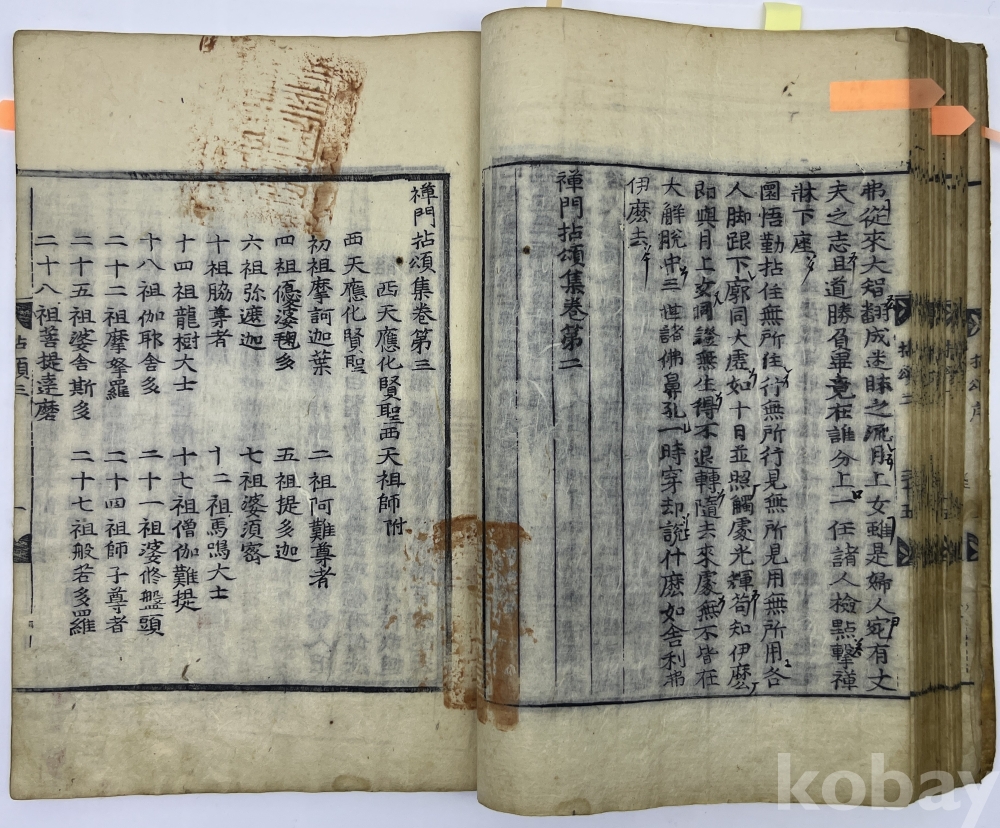 弗從來大智翻成迷昧之流月上女雖是婦人宛有丈
夫之志且道勝負畢竟在誰分上一任諸人檢點擊禪
牀下座
圜悟勤拈住無所住行無所行見無所見用無所用各
人脚跟下廓同大虛如十日並照觸處光輝苟知伊麽
即與月上女同證無生得不退轉隨去來處無不皆在
大解脫中三世諸佛鼻孔一時穿却說什麽如舍利弗
伊麽去
禪門拈頌集卷第二
禪門拈頌集卷第三
西天應化賢聖西天祖師附
西天應化賢聖
初祖摩訶伽葉 二祖阿難尊者
四祖優婆毱多 五祖提多迦
六祖弥遮迦 七祖婆須密
十祖脇尊者 十二祖馬鳴大士
十四祖龍樹大士 十七祖僧伽難提
十八祖伽耶舍多 二十一祖婆修盤頭
二十二祖摩拏羅 二十四祖師子尊者
二十五祖婆舍斯多 二十七祖般若多羅
二十八祖菩提達磨
拈頌三
一
kobay